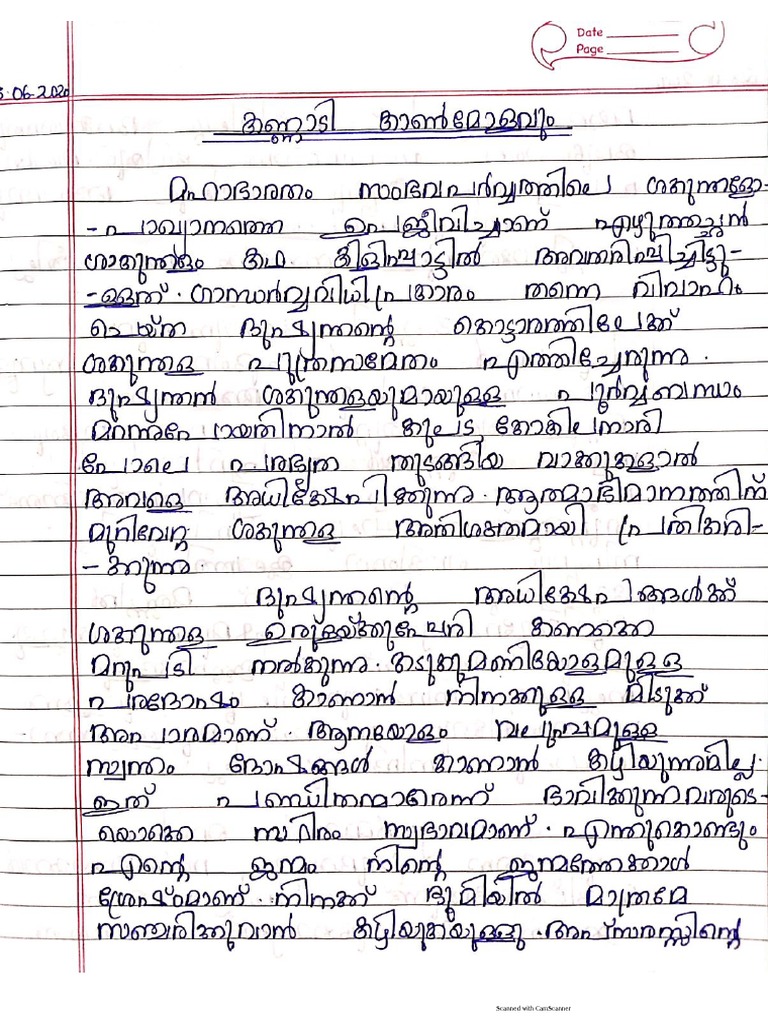 Date
Page
3.06.2020
കണ്ണാടി കാൺമോളവും
മഹാഭാരതം സംഭവപർവ്വത്തിലെ ശകുന്തളോ-
-പാഖ്യാനത്തെ ഉപജീവിച്ചാണ് എഴുത്തച്ഛൻ
ശാകുന്തളം കഥ കിളിപ്പാട്ടിൽ അവതരിപ്പിച്ചിട്ടു-
-ള്ളത്. ഗാന്ധർവ്വവിധിപ്രകാരം തന്നെ വിവാഹം
ചെയ്ത ദുഷ്യന്തന്റെ കൊട്ടാരത്തിലേക്ക്
ശകുന്തള പുത്രസമേതം എത്തിച്ചേരുന്നു.
ദുഷ്യന്തൻ ശകുന്തളയുമായുള്ള പൂർവ്വബന്ധം
മറന്നുപോയതിനാൽ കുലട കോകിലനാരി
പോലെ പരഭൃത തുടങ്ങിയ വാക്കുകളാൽ
അവളെ അധിക്ഷേപിക്കുന്നു. ആത്മാഭിമാനത്തിന്
മുറിവേറ്റ ശകുന്തള അതിശക്തമായി പ്രതികരി-
-ക്കുന്നു.
ദുഷ്യന്തന്റെ അധിക്ഷേപങ്ങൾക്ക്
ശകുന്തള ഉരുളയ്ക്കുപ്പേരി കണക്കെ
മറുപടി നൽകുന്നു. കടുകുമണിയോളമുള്ള
പരദോഷം കാണാൻ നിനക്കുള്ള മിടുക്ക്
അപാരമാണ്. ആനയോളം വലുപ്പമുള്ള
സ്വന്തം ദോഷങ്ങൾ കാണാൻ കഴിയുന്നുമില്ല.
ഇത് പണ്ഡിതന്മാരെന്ന് ഭാവിക്കുന്നവരുടെ-
യൊക്കെ സ്ഥിരം സ്വഭാവമാണ്. എന്തുകൊണ്ടും
എന്റെ ജന്മം നിന്റെ ജന്മത്തേക്കാൾ
ശ്രേഷ്ഠമാണ്. നിനക്ക് ഭൂമിയിൽ മാത്രമേ
സഞ്ചരിക്കുവാൻ കഴിയുകയുള്ളു. അപ്സരസ്സിന്റെ
Scanned with CamScanner